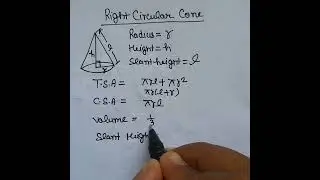 Right Circular Cone
Radius = r
Height = h
Slant height = l
T.S.A = πrl + πr²
πr(l+r)
C.S.A = πrl
Volume = 1/3
Slant Heigh
h
l
r